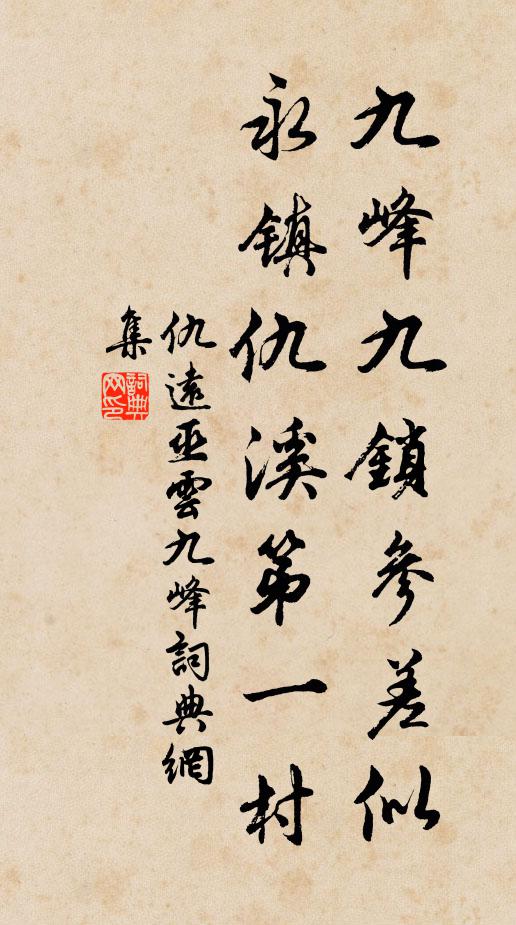 九峰九鎖參差似
永鎮仇溪第一村
仇遠巫雲九峰詞典網
集
詞典網印